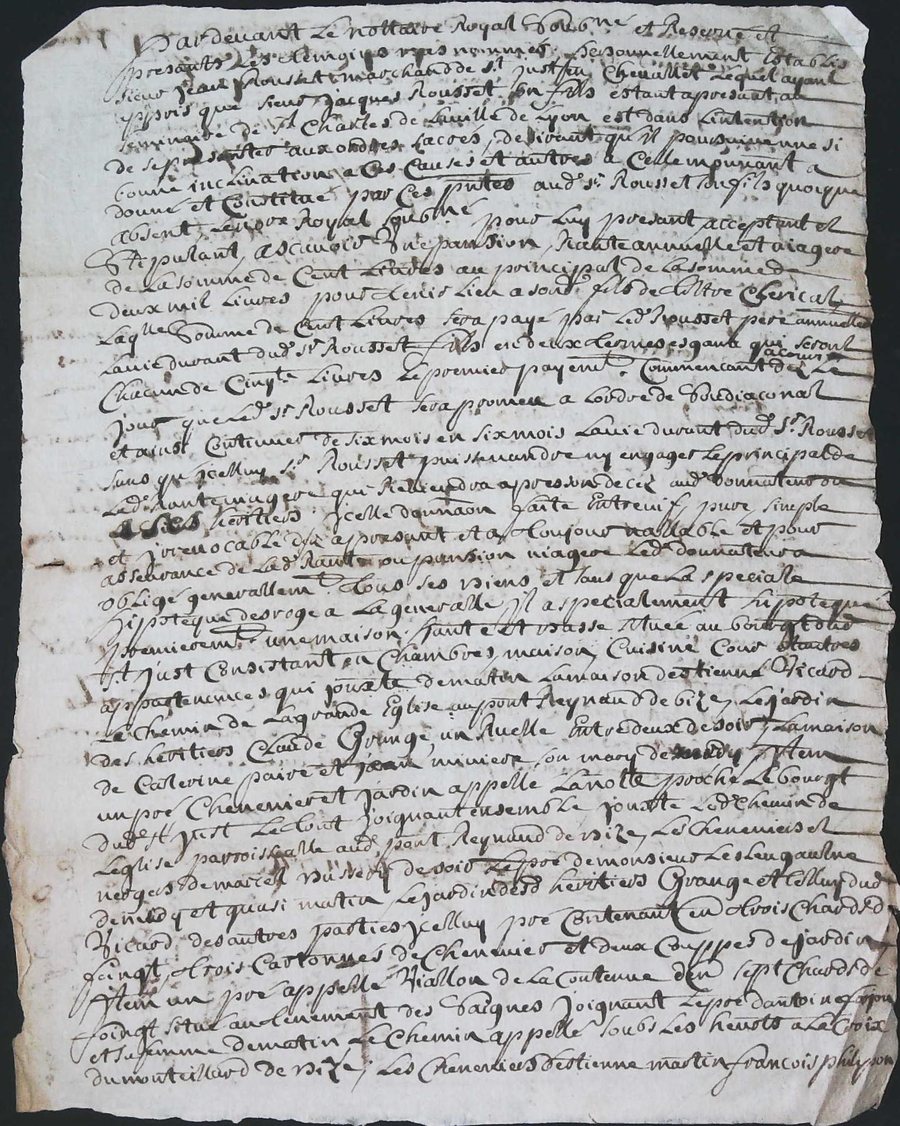 Pardevant Le nottaire Royal Soubné et Reservé et
presants Les temoings bas nommés, personnellement Establis
sieur Jean Rousset marchand de St Just en Chevallet Lequel ayant
appris que sieur Jacques Rousset son fils estant apresant au
seminaire de St Charles de La ville de Lyon est dans Lintention
de se presenter aux ordres sacres, desirant quil poursuive une si
bonne inclination a Ces Causes et autres a Celle mouvant a
donné et Constitué par Ces pntes aud. Sr Rousset son fils quoique
absent, Le nore Royal soubné pour Luy presant acceptant et
Stipulant, ascavoir Une pansion, Rante annuelle et viagere
de La somme de Cent Livres au principal de La somme de
deux mil Livres pour tenir Lieu a sond. fils de tiltre Clerical,
Laqlle Somme de Cent Livres sera payé par Led. Rousset pere annuelle
La vie durant dud. Sr Rousset fils en deux termes esgaux qui seront
Chacun de Cinqte Livres Le premier payemt. Commencant de Le
jour que Led. Sr Rousset sera promeu a Lordre de Soudiaconat
et ainsi Continuer de six mois en six mois La vie durant dud. Sr. Rousset
sans qu'icelluy Sr. Rousset puisse vandre ny engager Le principal de
Lad. Rante viagere qui Reviendra apres son deces aud. donnateur ou
a ses heritiers, icelle donnaon faite Entrevif, pure simple
et irrevocable des apresant et a toujours vallable et pour
asseurance de Lad. Rante ou pansion viagere Led. donnateur a
obligé generallemt. tous ses biens et sans que La speciale
hipoteque desroge a La generalle, Il a specialement hipotequé
premieremt. une maison haute et basse situee au bourgt dud.
St Just Consistant en Chambres, maison, Cuisine Cour et autres
appartenances qui jouxte de matin La maison destienne Bicard
Le Chemin de La grande Eglise au pont Reynaud de bize, Le jardin
des heritiers Claude Grange, un Ruelle Entredeux de soir, La maison
de Caterine paire et Jean miniere son mary de midy, Item
un pré Chenevier et Jardin appellé La notte proche Le bourgt
dud. St Just Le tout Joignant ensemble jouxte Led. Chemin de
Leglise parroissialle aud. pont Reynaud de bize, Les Cheneviers et
vergers de marcell de soir Le pré de monsieur
de midy et quasi matin Le jardin desd. heritiers Grange et Celluy dud.
Bicard, des autres parties Icelluy pré Contenant En trois Chards de
foingt, trois Cartonnés de Chenevier et deux Couppes de jardin
Item un pré appellé Biallon de La Contenue den. sept Chards de
foingt situé au tenement des Saignes Joignant Le pré dantoine
et sa femme de matin Le Chemin appellé soubs Les a La Croix
du monteillard de bize, Les Cheneviers destienne martin francois phelipon